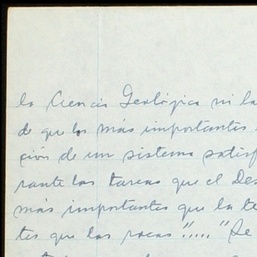 la Ciencia Geológica ni la
de que los más importantes
ción de un sistema satisf
rante las tareas que el Des
más importantes que la te
tes que las rocas"....." Se